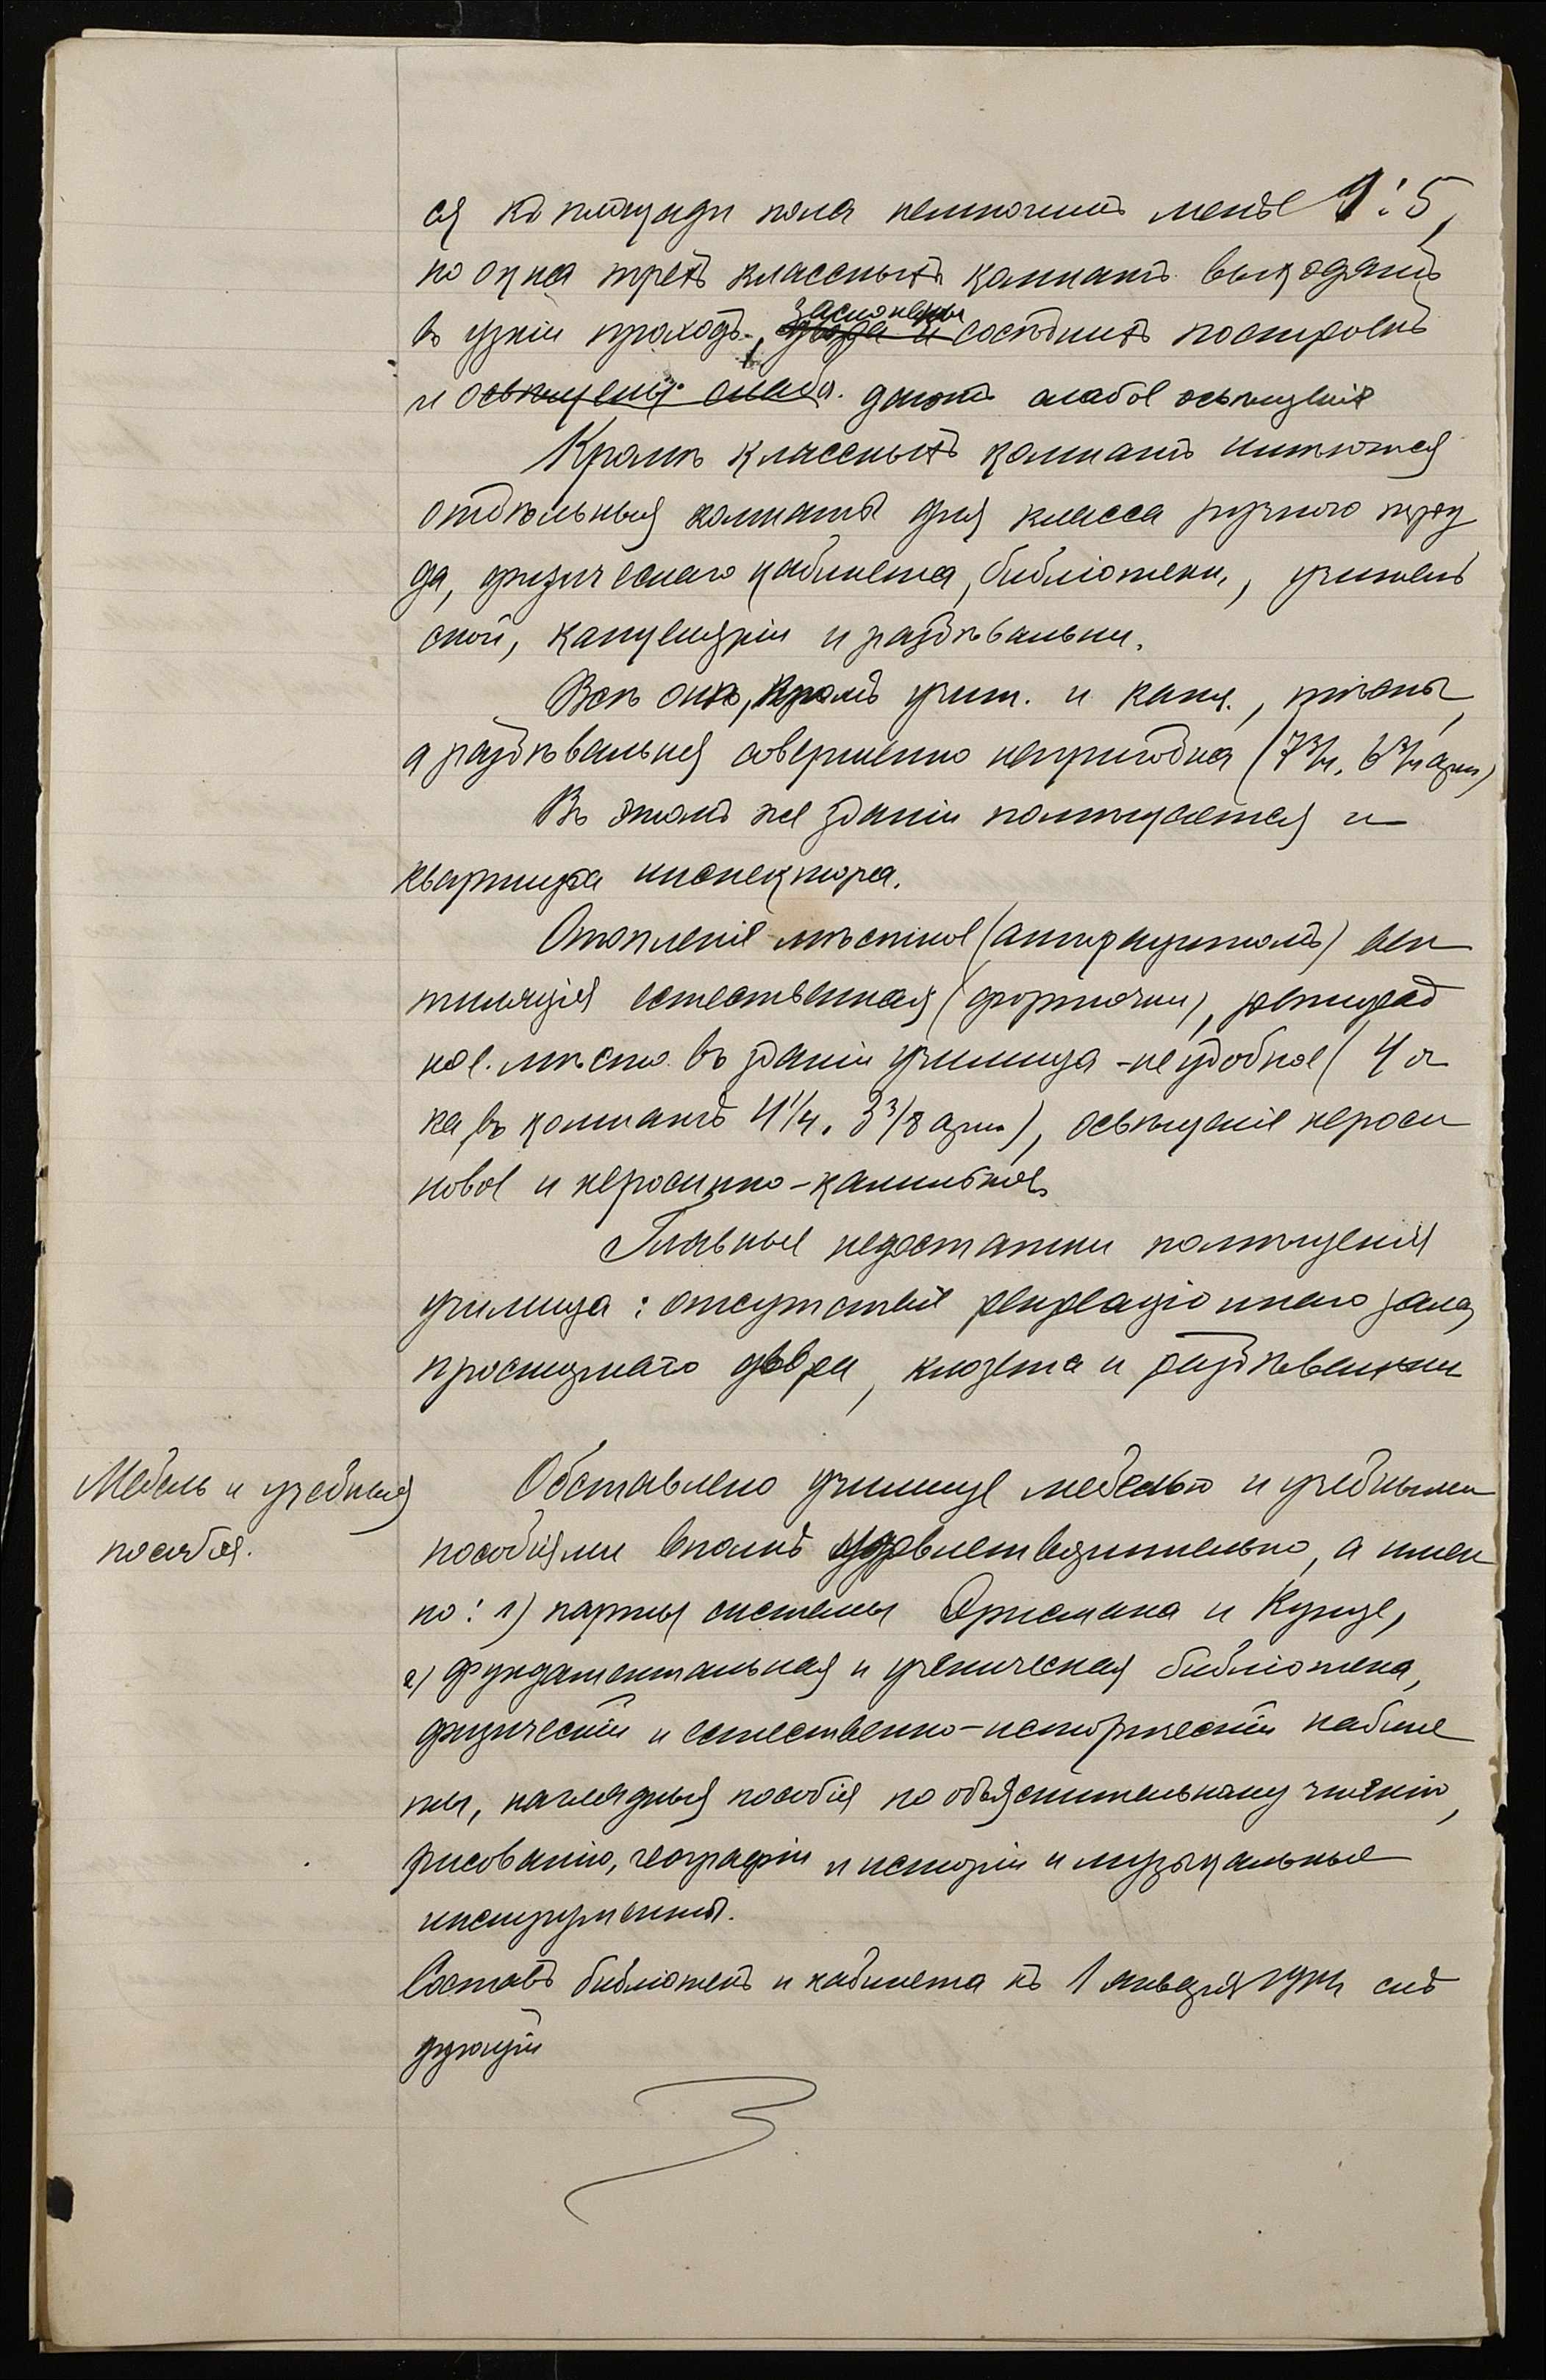 ся къ площади пола немногимъ менѣе 1:5,
но окна трехъ классныхъ комнатъ выходятъ
въ узкій проходъ, заслонены двора и сосѣднихъ построекъ
и освѣщены слабо. даютъ слабое освѣщеніе
Кромѣ классныхъ комнатъ имѣются
отдѣльныя комнаты для класса ручного тру
да, физическаго кабинета, библіотеки, учитель
ской, канцеляріи и раздѣвальни.
Всѣ онѣ, кромѣ учит. и канц., тѣсны,
а раздѣвальня совершенно непригодна (7¾. 6¾ арш)
Въ этомъ же зданіи помѣщается и
квартира инспектора.
Отопленіе мѣстное (антрацитомъ) вен
тиляція естественная (форточки),
ное. мѣсто въ зданіи училища - неудобное (4 оч
ка, въ комнатѣ 4¼. 3⅜ арш), освѣщеніе кероси
новое и керосинно-калильное
Главные недостатки помѣщенія
училища: отсутствіе рекреаціоннаго зала,
просторнаго двора, клозета и раздѣвальни
Мебель и учебныя
пособія.
Обставлено училище мебелью и учебными
пособіями вполнѣ удовлетворительно, а имен
но: 1) парты системы Эрисмана и Кунце,
2) фундаментальная и ученическая библіотека,
физическій и естественно-историческій кабине
ты, наглядныя пособія по объяснительному чтенію,
рисованію, географіи и исторіи и музыкальные
инструменты.
Составъ библіотекъ и кабинета къ 1 января слѣ
дующій